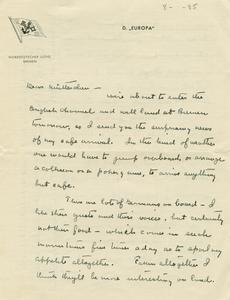 8 - -35
D. „EUROPA"
NORDDEUTSCHER LLOYD
BREMEN
Dear Mütterchen —
We're about to enter the
English Channel and will land at Bremen
tomorrow, so I send you the surprising news
of my safe arrival. In this kind of weather
one would have to jump overboard or arrange
a collision on a foggy day, to arrive anything
but safe.
There are lots of Germans on board — I
like their guests and their voices, but certainly
not their food — which comes in such
quantities five times a day as to spoil my
appetite altogether. From altogether I
think might be more interesting on land.